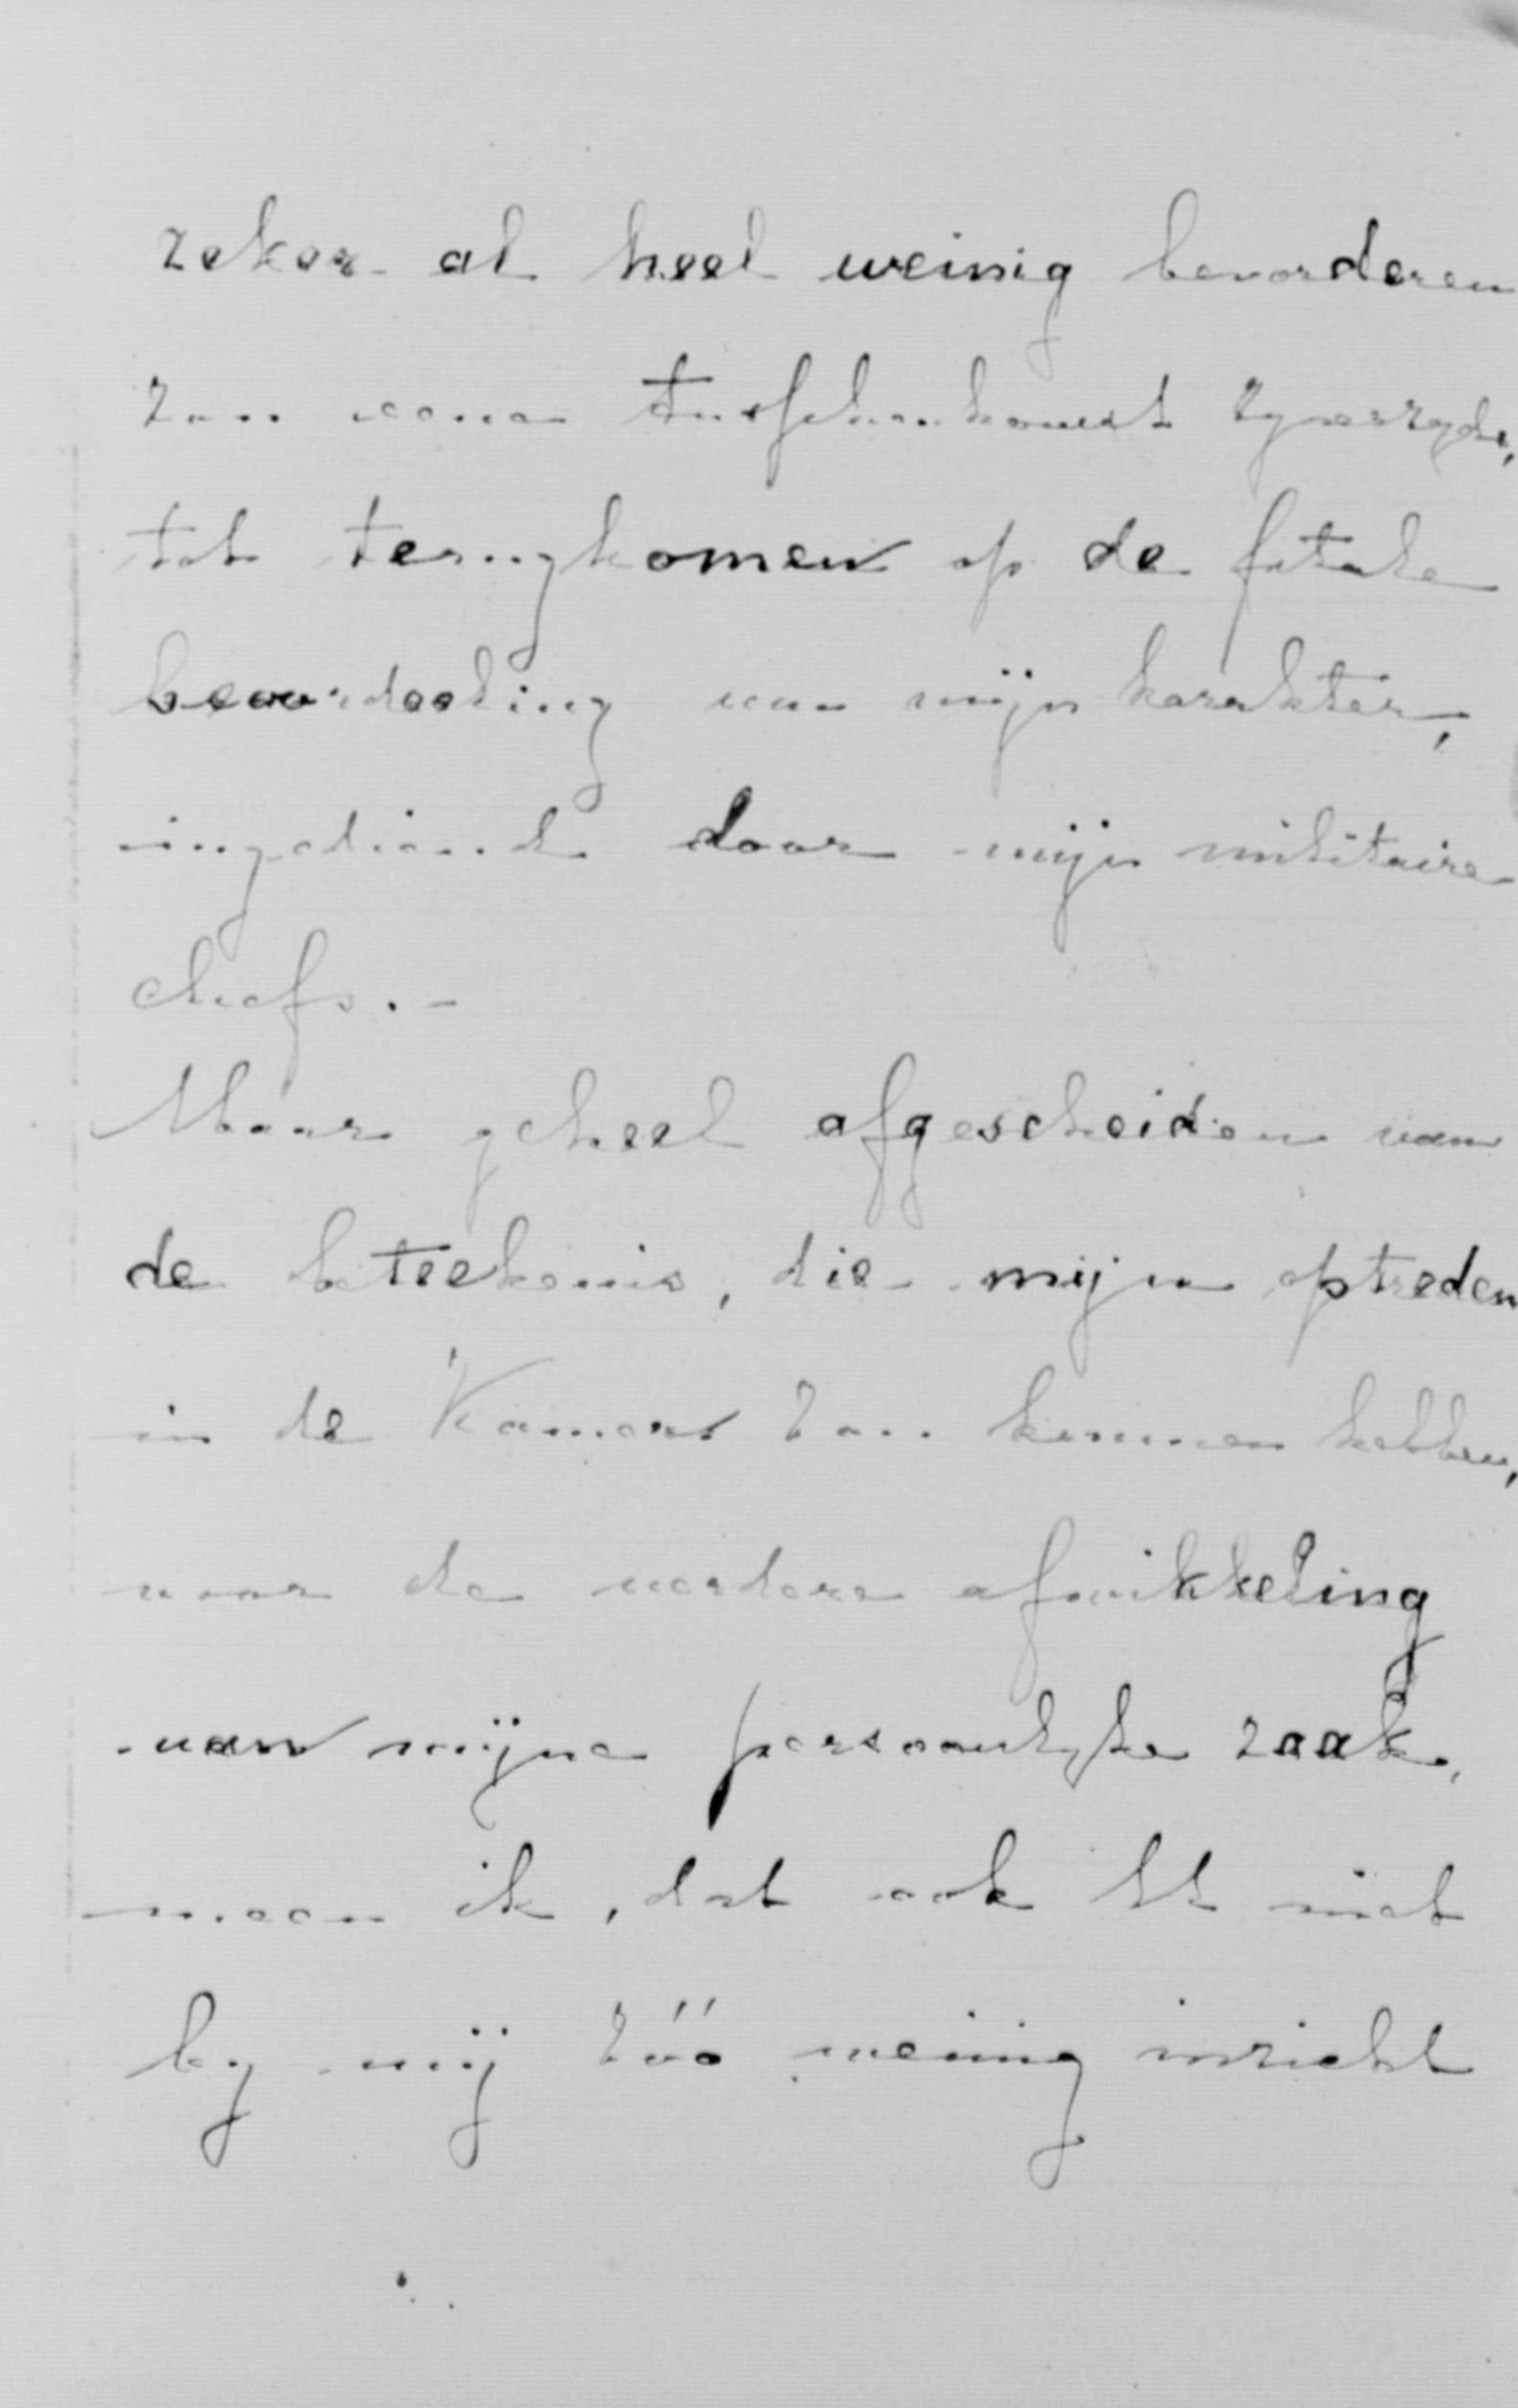 zeker al heel weinig bevorderen
zou eene tusschenkomst zynerzyds,
tot terugkomen op de fatale
beoordeeling van mijn karakter,
ingediend door mijn militaire
chefs.-
Maar geheel afgescheiden van
de beteekenis, die mijn optreden
in de Kamer zou kunnen hebben,
voor de verdere afwikkeling
van mijne persoonlyke zaak,
meen ik, dat ook U niet
by mij zóó weinig inzicht